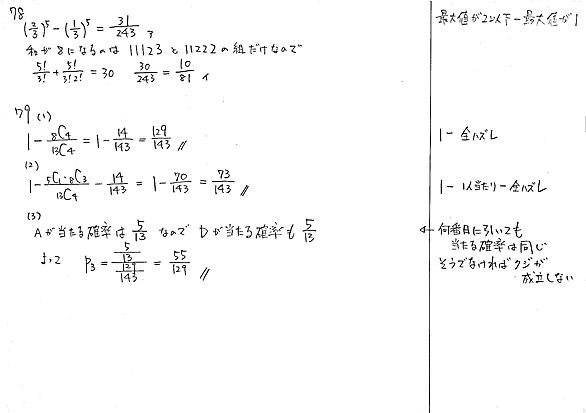 78
(2/3)^5 - (1/3)^5 = 31/243 , 最大値が2以下 - 最大値が1
和が8になるのは 11123 と 11222 の組だけなので
5!/3! + 5!/3!2! = 30 30/243 = 10/81 ,
79 (1)
1 - 8C4/13C4 = 1 - 14/143 = 129/143 // 1 - 全ハズレ
(2)
1 - 5C1・8C3/13C4 - 14/143 = 1 - 70/143 = 73/143 // 1 - 1人当たり - 全ハズレ
(3)
Aが当たる確率は 5/13 なので Dが当たる確率も 5/13 ← 何番目に引いても
当たる確率は同じ
よって P3 = (5/13)/(129/143) = 55/129 // そうでなければクジが
成立しない